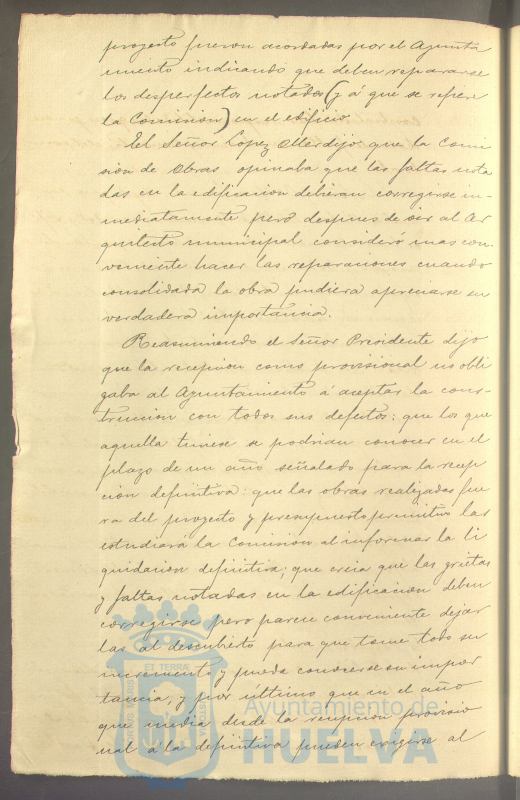 proyecto fueron acordadas por el Ayunta
miento indicando que deben repararse
los desperfectos notados (y á que se refiere
la Comision) en el edificio.
El Señor Lopez Oller dijo: que la Comi
sion de Obras opinaba que las faltas nota
das en la edificacion debieran corregirse in-
mediatamente pero despues de oir al Ar
quitecto municipal consideró mas con-
veniente hacer las reparaciones cuando
consolidada la obra pudiera apreciarse su
verdadera importancia.
Reasumiendo el Señor Presidente dijo
que la recepcion como provisional no obli
gaba al Ayuntamiento á aceptar la cons-
truccion con todos sus defectos: que los que
aquella tuviese se podrian conocer en el
plazo de un año señalado para la recep
cion definitiva: que las obras realizadas fue
ra del proyecto y presupuesto primitivo las
estudiará la Comision al informar la li
quidacion definitiva; que creia que las grietas
y faltas notadas en la edificacion deben
corregirse pero parece conveniente dejar
las al descubierto para que tome todo su
incremento y pueda conocerse su impor
tancia, y por ultimo que en el año
que media desde la recepcion provisio
nal á la definitiva pueden exigirse al
ET TERRAE
Ayuntamiento de
HUELVA